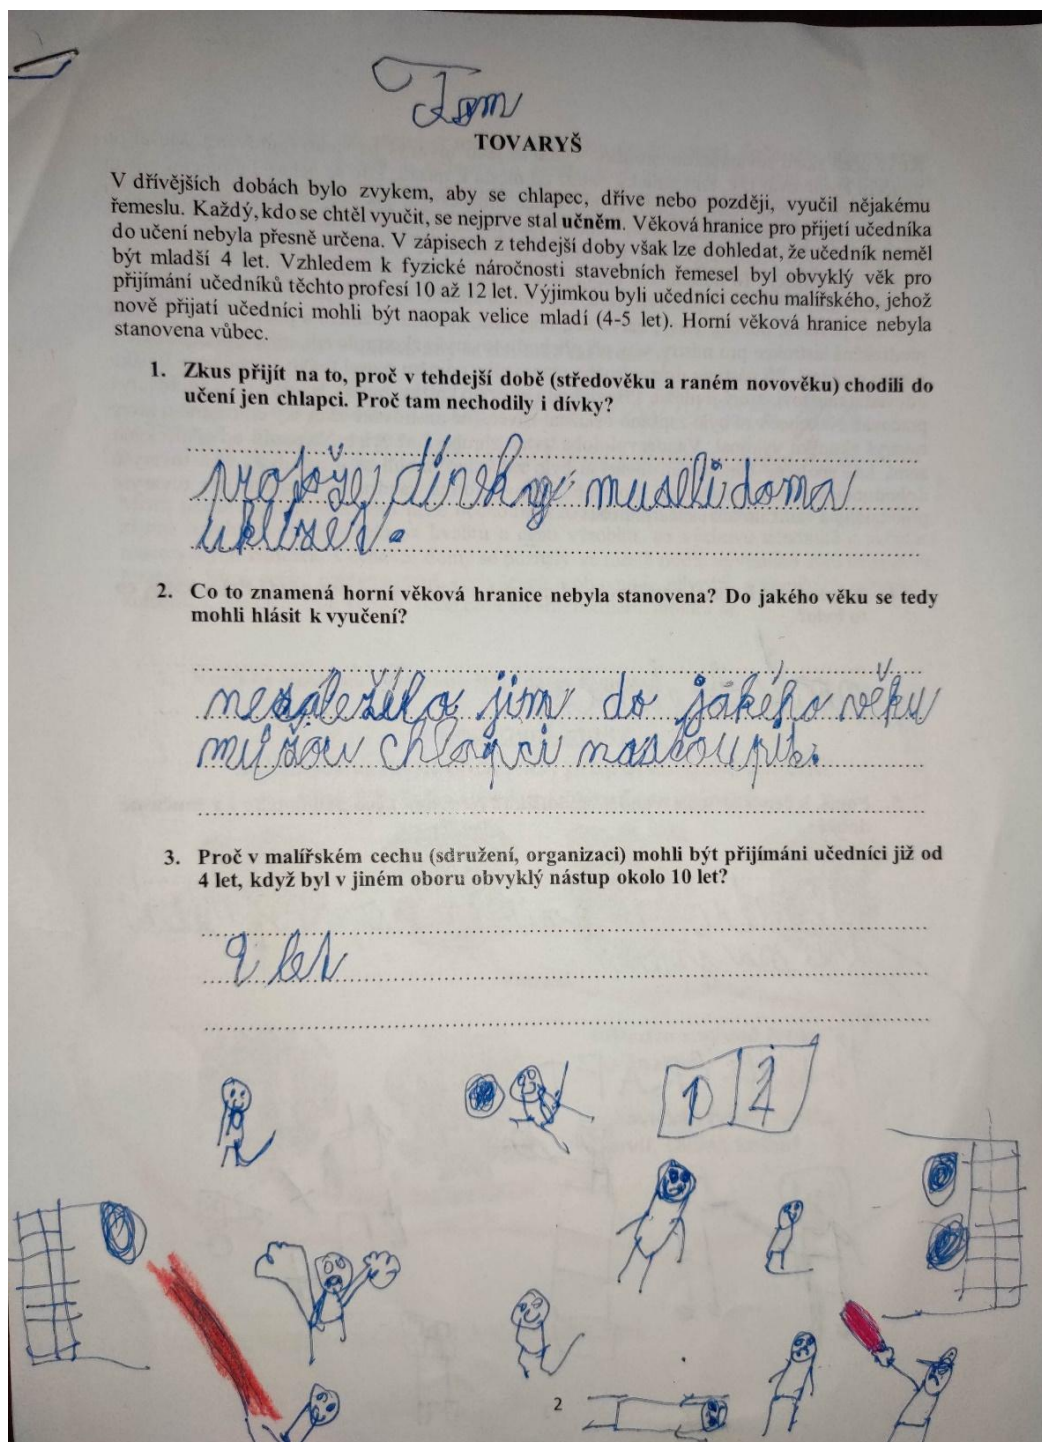 Tom
TOVARYŠ
V dřívějších dobách bylo zvykem, aby se chlapec, dříve nebo později, vyučil nějakému
řemeslu. Každý, kdo se chtěl vyučit, se nejprve stal učněm. Věková hranice pro přijetí učedníka
do učení nebyla přesně určena. V zápisech z tehdejší doby však lze dohledat, že učedník neměl
být mladší 4 let. Vzhledem k fyzické náročnosti stavebních řemesel byl obvyklý věk pro
přijímání učedníků těchto profesí 10 až 12 let. Výjimkou byli učedníci cechu malířského, jehož
nově přijatí učedníci mohli být naopak velice mladí (4-5 let). Horní věková hranice nebyla
stanovena vůbec.
1. Zkus přijít na to, proč v tehdejší době (středověku a raném novověku) chodili do
učení jen chlapci. Proč tam nechodily i dívky?
protože dívky museli doma
uklízet.
2. Co to znamená horní věková hranice nebyla stanovena? Do jakého věku se tedy
mohli hlásit k vyučení?
nezáleželo jim do jakého věku
můžou chlapci nastoupit.
3. Proč v malířském cechu (sdružení, organizaci) mohli být přijímáni učedníci již od
4 let, když byl v jiném oboru obvyklý nástup okolo 10 let?
9 let
2